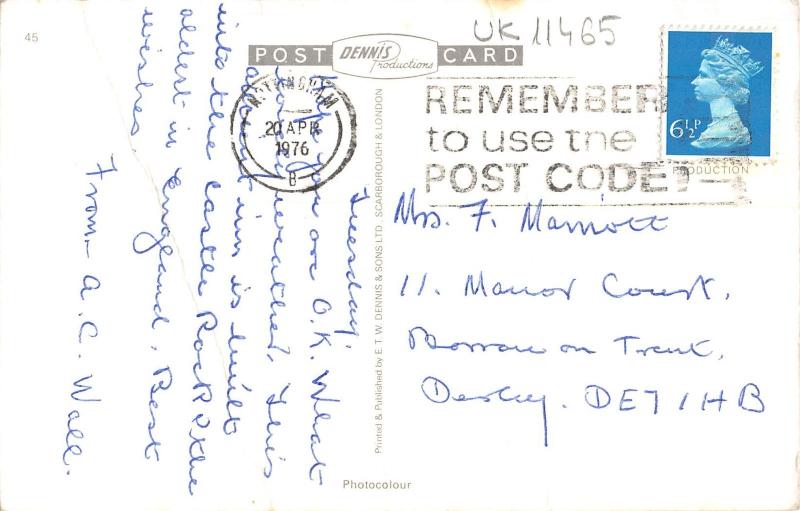 45
UK 11465
POST DENNIS Productions CARD
NOTTINGHAM
20 APR
1976
B
REMEMBER
to use the
POST CODE
6½P
Tuesday.
Hope you are O.K. What
weather. This
ancient inn is built
into the Castle Rock & the
oldest in England. Best
wishes.
From A. C. Wall.
Printed & Published by E.T.W. DENNIS & SONS LTD. SCARBOROUGH & LONDON
PRODUCTION
Mrs. F. Marriott
11. Manor Court,
Barrow on Trent,
Derby. DE7 1HB
Photocolour